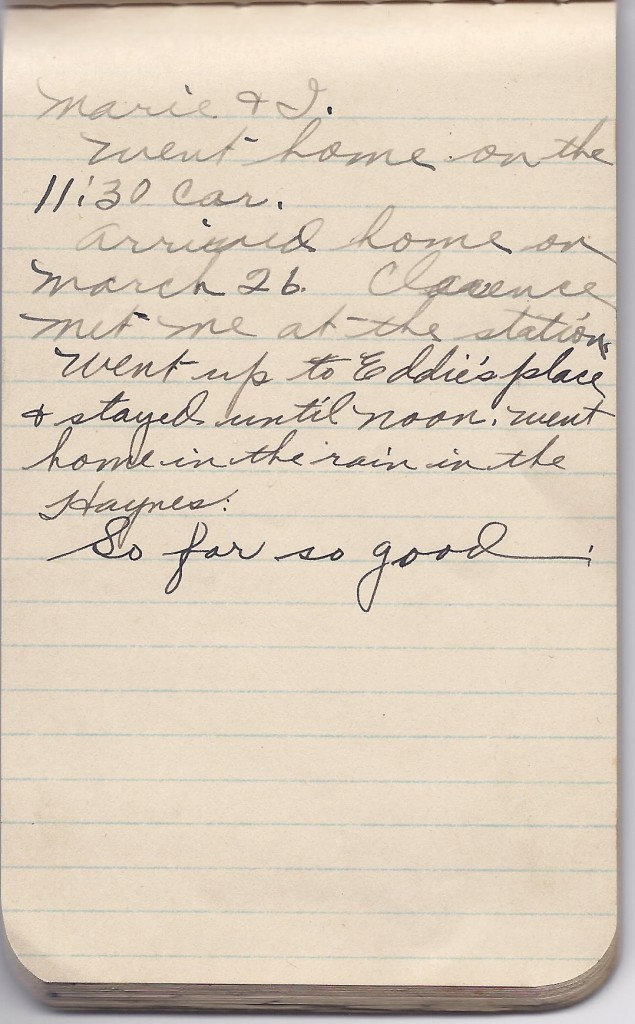 Marie & I.
Went home on the
11:30 car.
Arrived home on
March 26. Clarence
met me at the station.
Went up to Eddie's place
& stayed until noon. Went
home in the rain in the
Haynes.
So far so good.